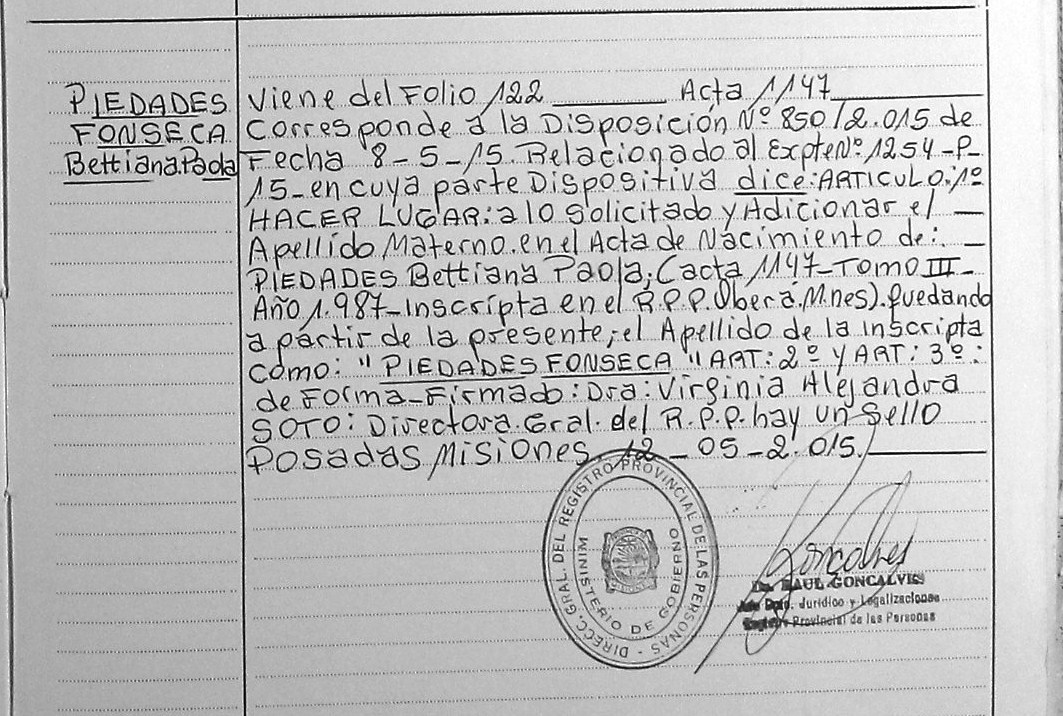 PIEDADES
FONSECA
Bettiana Paola
Viene del Folio 122 ______ Acta 1147______
Corresponde a la Disposición Nº 850/2.015 de
Fecha 8-5-15. Relacionado al Expte Nº 1254-P-
15- en cuya parte Dispositiva dice: ARTICULO: 1º
HACER LUGAR: a lo solicitado y Adicionar el —
Apellido Materno. en el Acta de Nacimiento de: —
PIEDADES Bettiana Paola; (acta 1147-Tomo III-
Año 1.987- Inscripta en el R.P.P. Oberá. Mnes). quedando
a partir de la presente; el Apellido de la inscripta
como: "PIEDADES FONSECA" ART: 2º Y ART: 3º:
de Forma-Firmado: Dra: Virginia Alejandra
SOTO: Directora. Gral. del R.P.P. hay un Sello
POSADAS MISIONES. 12-05-2.015.______
DIRECC. GRAL. DEL REGISTRO PROVINCIAL DE LAS PERSONAS -
MINISTERIO DE GOBIERNO
Goncalves
Dr. RAUL GONCALVES
Jefe Dpto. Jurídico y Legalizaciones
Registro Provincial de las Personas